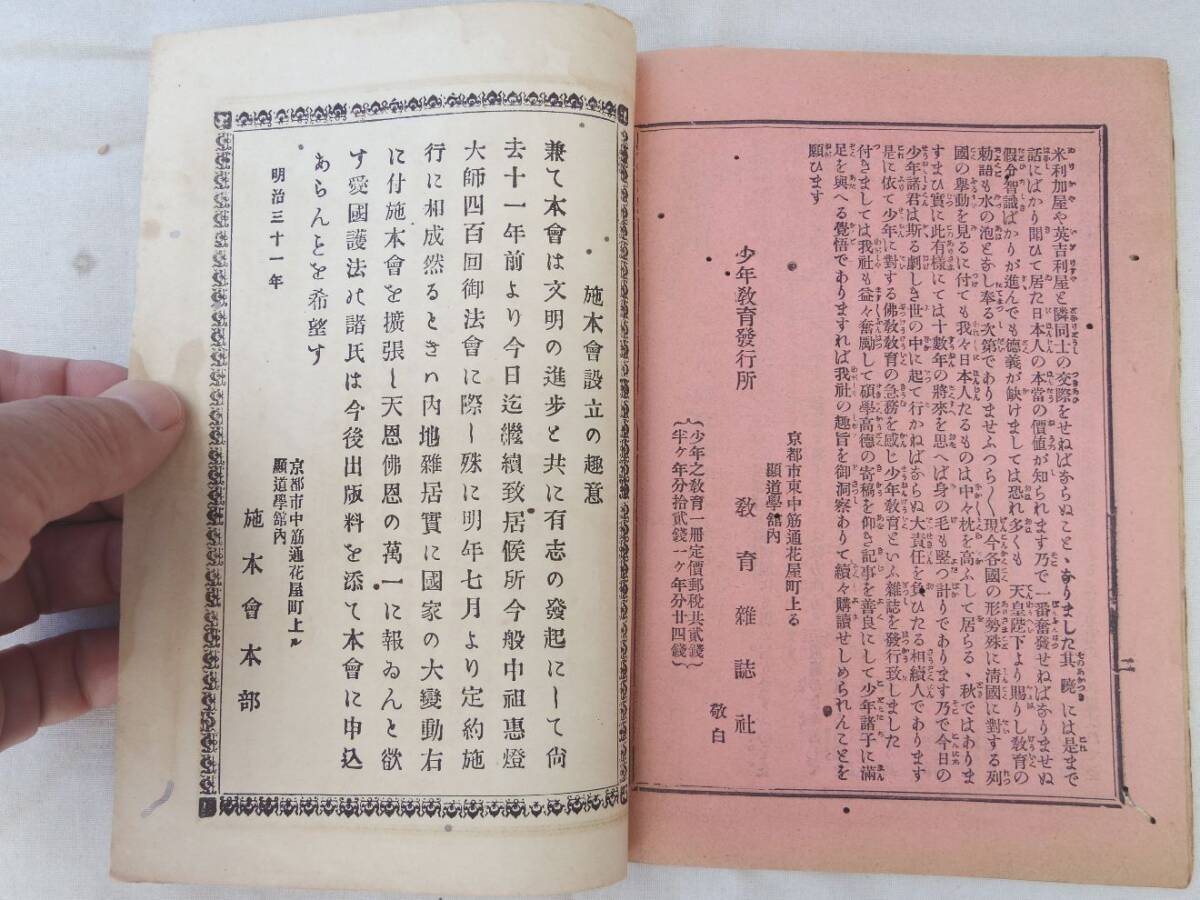 二
米利加屋や英吉利屋と隣同士の交際をせねばならぬこと、なりました其曉には是まで
話にばかり聞ひて居た日本人の本當の價値が知られます乃で一番奮發せねばなりませぬ
假令智識ばかりが進んでも德義が缺けましては恐れ多くも 天皇陛下より賜りし敎育の
勅語も水の泡となし奉る次第でありませふつら〳〵現今各國の形勢殊に淸國に對する列
國の擧動を見るに付ても我々日本人たるものは中々枕を高ふして居らるゝ秋ではありま
すまひ實に此有樣にては十數年の將來を思へば身の毛も竪つ計りであります乃で今日の
少年諸君は斯る劇しき世の中に起て行かねばならぬ大責任を負ひたる相續人であります
是に依て少年に對する佛敎敎育の急務を感し少年敎育といふ雜誌を發行致しました
付きましては我社も益々奮勵して碩學高德の寄稿を仰き記事を善良にして少年諸子に滿
足を與へる覺悟でありますれば我社の趣旨を御洞察ありて續々購讀せしめられんことを
願ひます
京都市東中筋通花屋町上る
顯道學館內
少年敎育發行所 敎育雜誌社 敬白
少年之敎育一冊定價郵稅共貳錢
半ケ年分拾貳錢一ケ年分廿四錢
施本會設立の趣意
兼て本會は文明の進步と共に有志の發起にして尙
去十一年前より今日迄繼續致居候所今般中祖惠燈
大師四百回御法會に際し殊に明年七月より定約施
行に相成然るときハ內地雜居實に國家の大變動右
に付施本會を擴張し天恩佛恩の萬一に報ゐんと欲
す愛國護法の諸氏は今後出版料を添て本會に申込
あらんことを希望す
明治三十一年
京都市中筋通花屋町上ル
顯道學館內
施本會本部